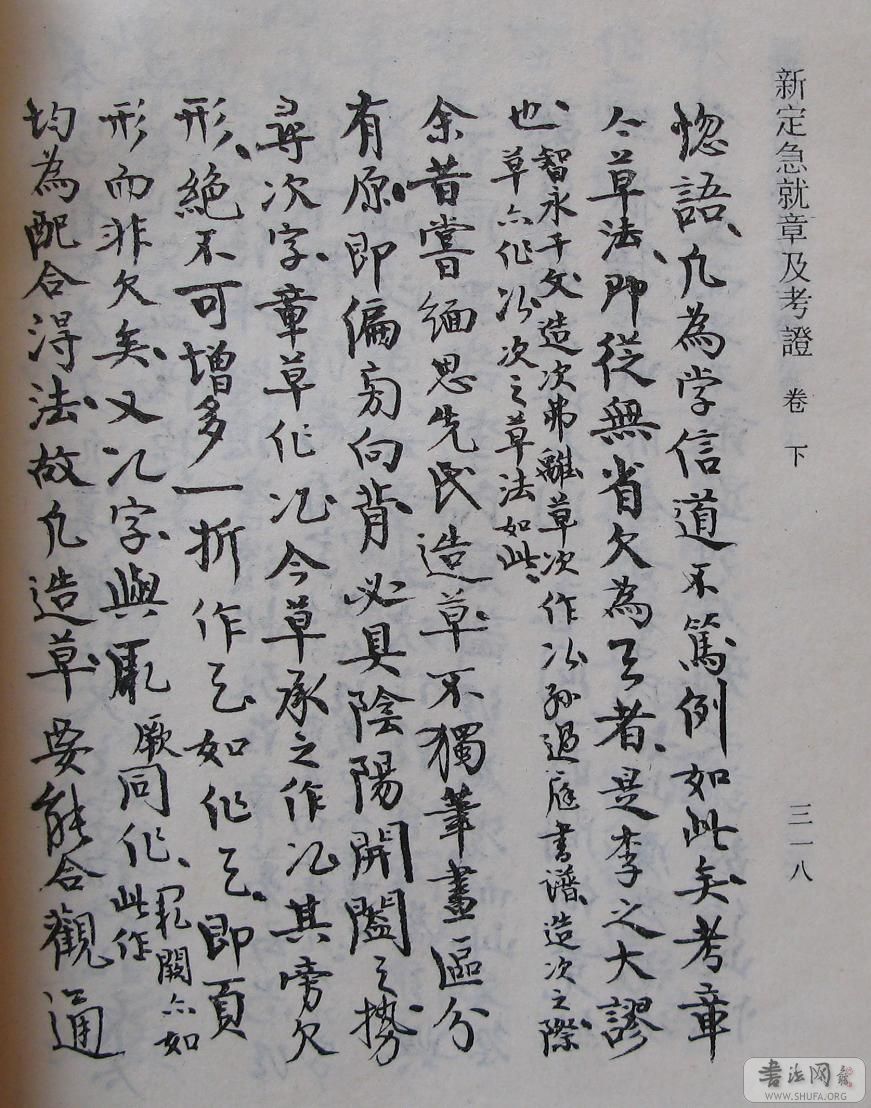 新定急就章及考證 卷下 三一八
惚語、凡為学信道不篤例如此矣、考章
今草法、即從無省欠為者、是李之大謬
也、智永千文造次弗離草次作孫過庭書譜、造次之際、
草亦作次之草法如此、
余昔嘗緬思先民造草、不獨筆畫區分
有原、即偏旁向背、必具陰陽開闔之勢、
尋次字、章草作、今草承之作、其旁欠
形、絕不可增多一折作、如作、即頁
形而非欠矣、又字、與厥同作、此作闕亦如
均為配合得法、故凡造草、要能合觀通
書法网
WWW.SHUFA.ORG